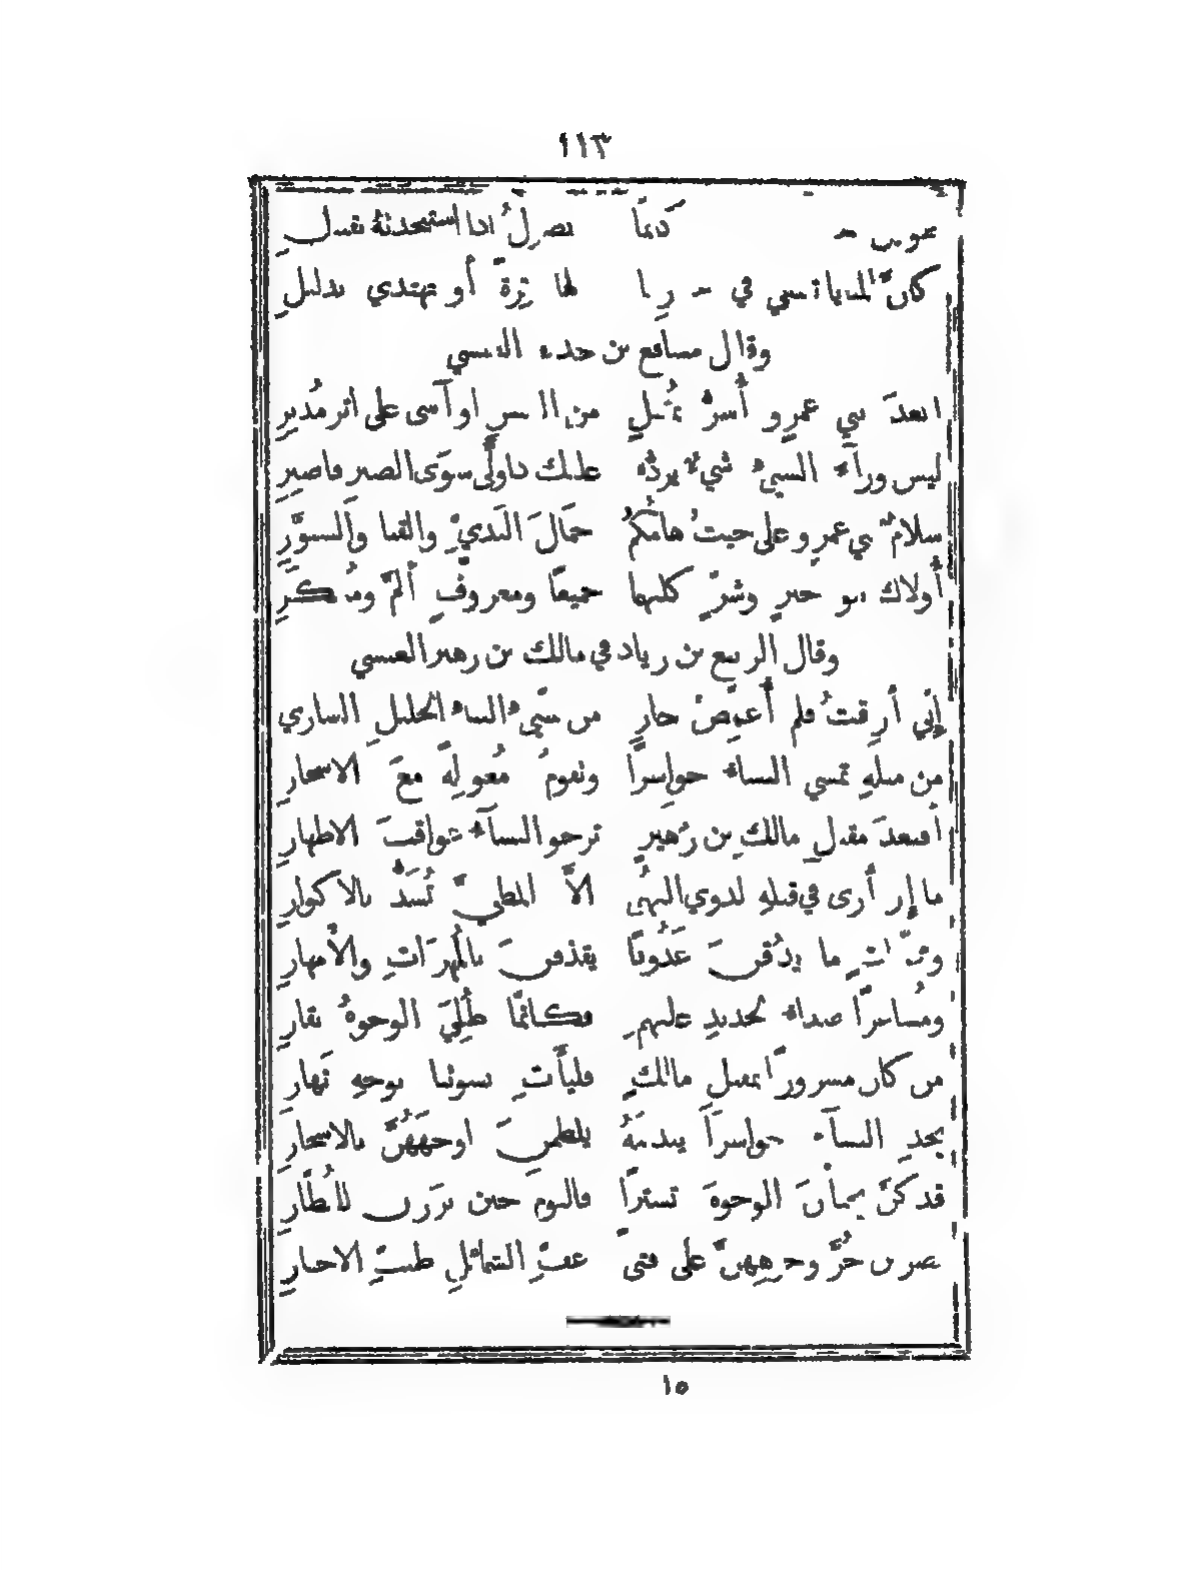 ١١٣
يصولُ اذا استنجدتهُ بقبيلِ
كأنَّ المنايا تبتغي في لها تِرةً أو تهتدي بدليلِ
وقال مسافع بن حذيفة العبسي
ابعدَ بني عمرٍو أُسرُّ بمُقبلٍ من العيش او آسى على اثر مُدبرِ
ليس ورآءَ الشيءِ شيءٌ يردُّهُ عليك اذا ولَّى سوَى الصبر فاصبرِ
سلامٌ بني عمرٍو على حيثُ هامُكُمُ جمَالَ النَديِّ والقنا والسنوَّرِ
أُولاك بنو خيرٍ وشرٍّ كليهما جميعًا ومعروفٍ أَلمَّ ومُنكَرِ
وقال الربيع بن زياد في مالك بن زهير العبسي
إِنّي أَرِقتُ فلم أُغمِّضْ حارِ من سيّئِ النبإِ الجليلِ الساري
من مثلهِ تمسي النساءُ حواسِراً وتقومُ مُعوِلةً معَ الاسحارِ
أَفبعدَ مقتلِ مالك بن زُهيرٍ ترجو النسآءُ عواقبَ الاطهارِ
ما إِن أَرى في قتلهِ لذوي النُهَى الاَّ المطيَّ تُشَدُّ بالاكوارِ
ومجنَّباتٍ ما يذُقنَ عَذُوفًا يقذفنَ بالمُهَراتِ والأَمهارِ
ومُساعراً صدأُ الحديدِ عليهِمِ فكأَنَّما طُلِيَ الوجوهُ بقارِ
من كان مسروراً بمقتلِ مالكٍ فليأْتِ نسوتنا بوجهِ نَهارِ
يجدِ النسآءَ حواسراً يندبنَهُ يلطمنَ اوجهَهُنَّ بالاسحارِ
قد كنَّ يخبأْنَ الوجوهَ تستراً فاليوم حين برَزن للنُظَّارِ
يضربن حُرَّ وجوهِهِنَّ على فتىً عفِّ الشمائلِ طيّبِ الاخبارِ
١٥